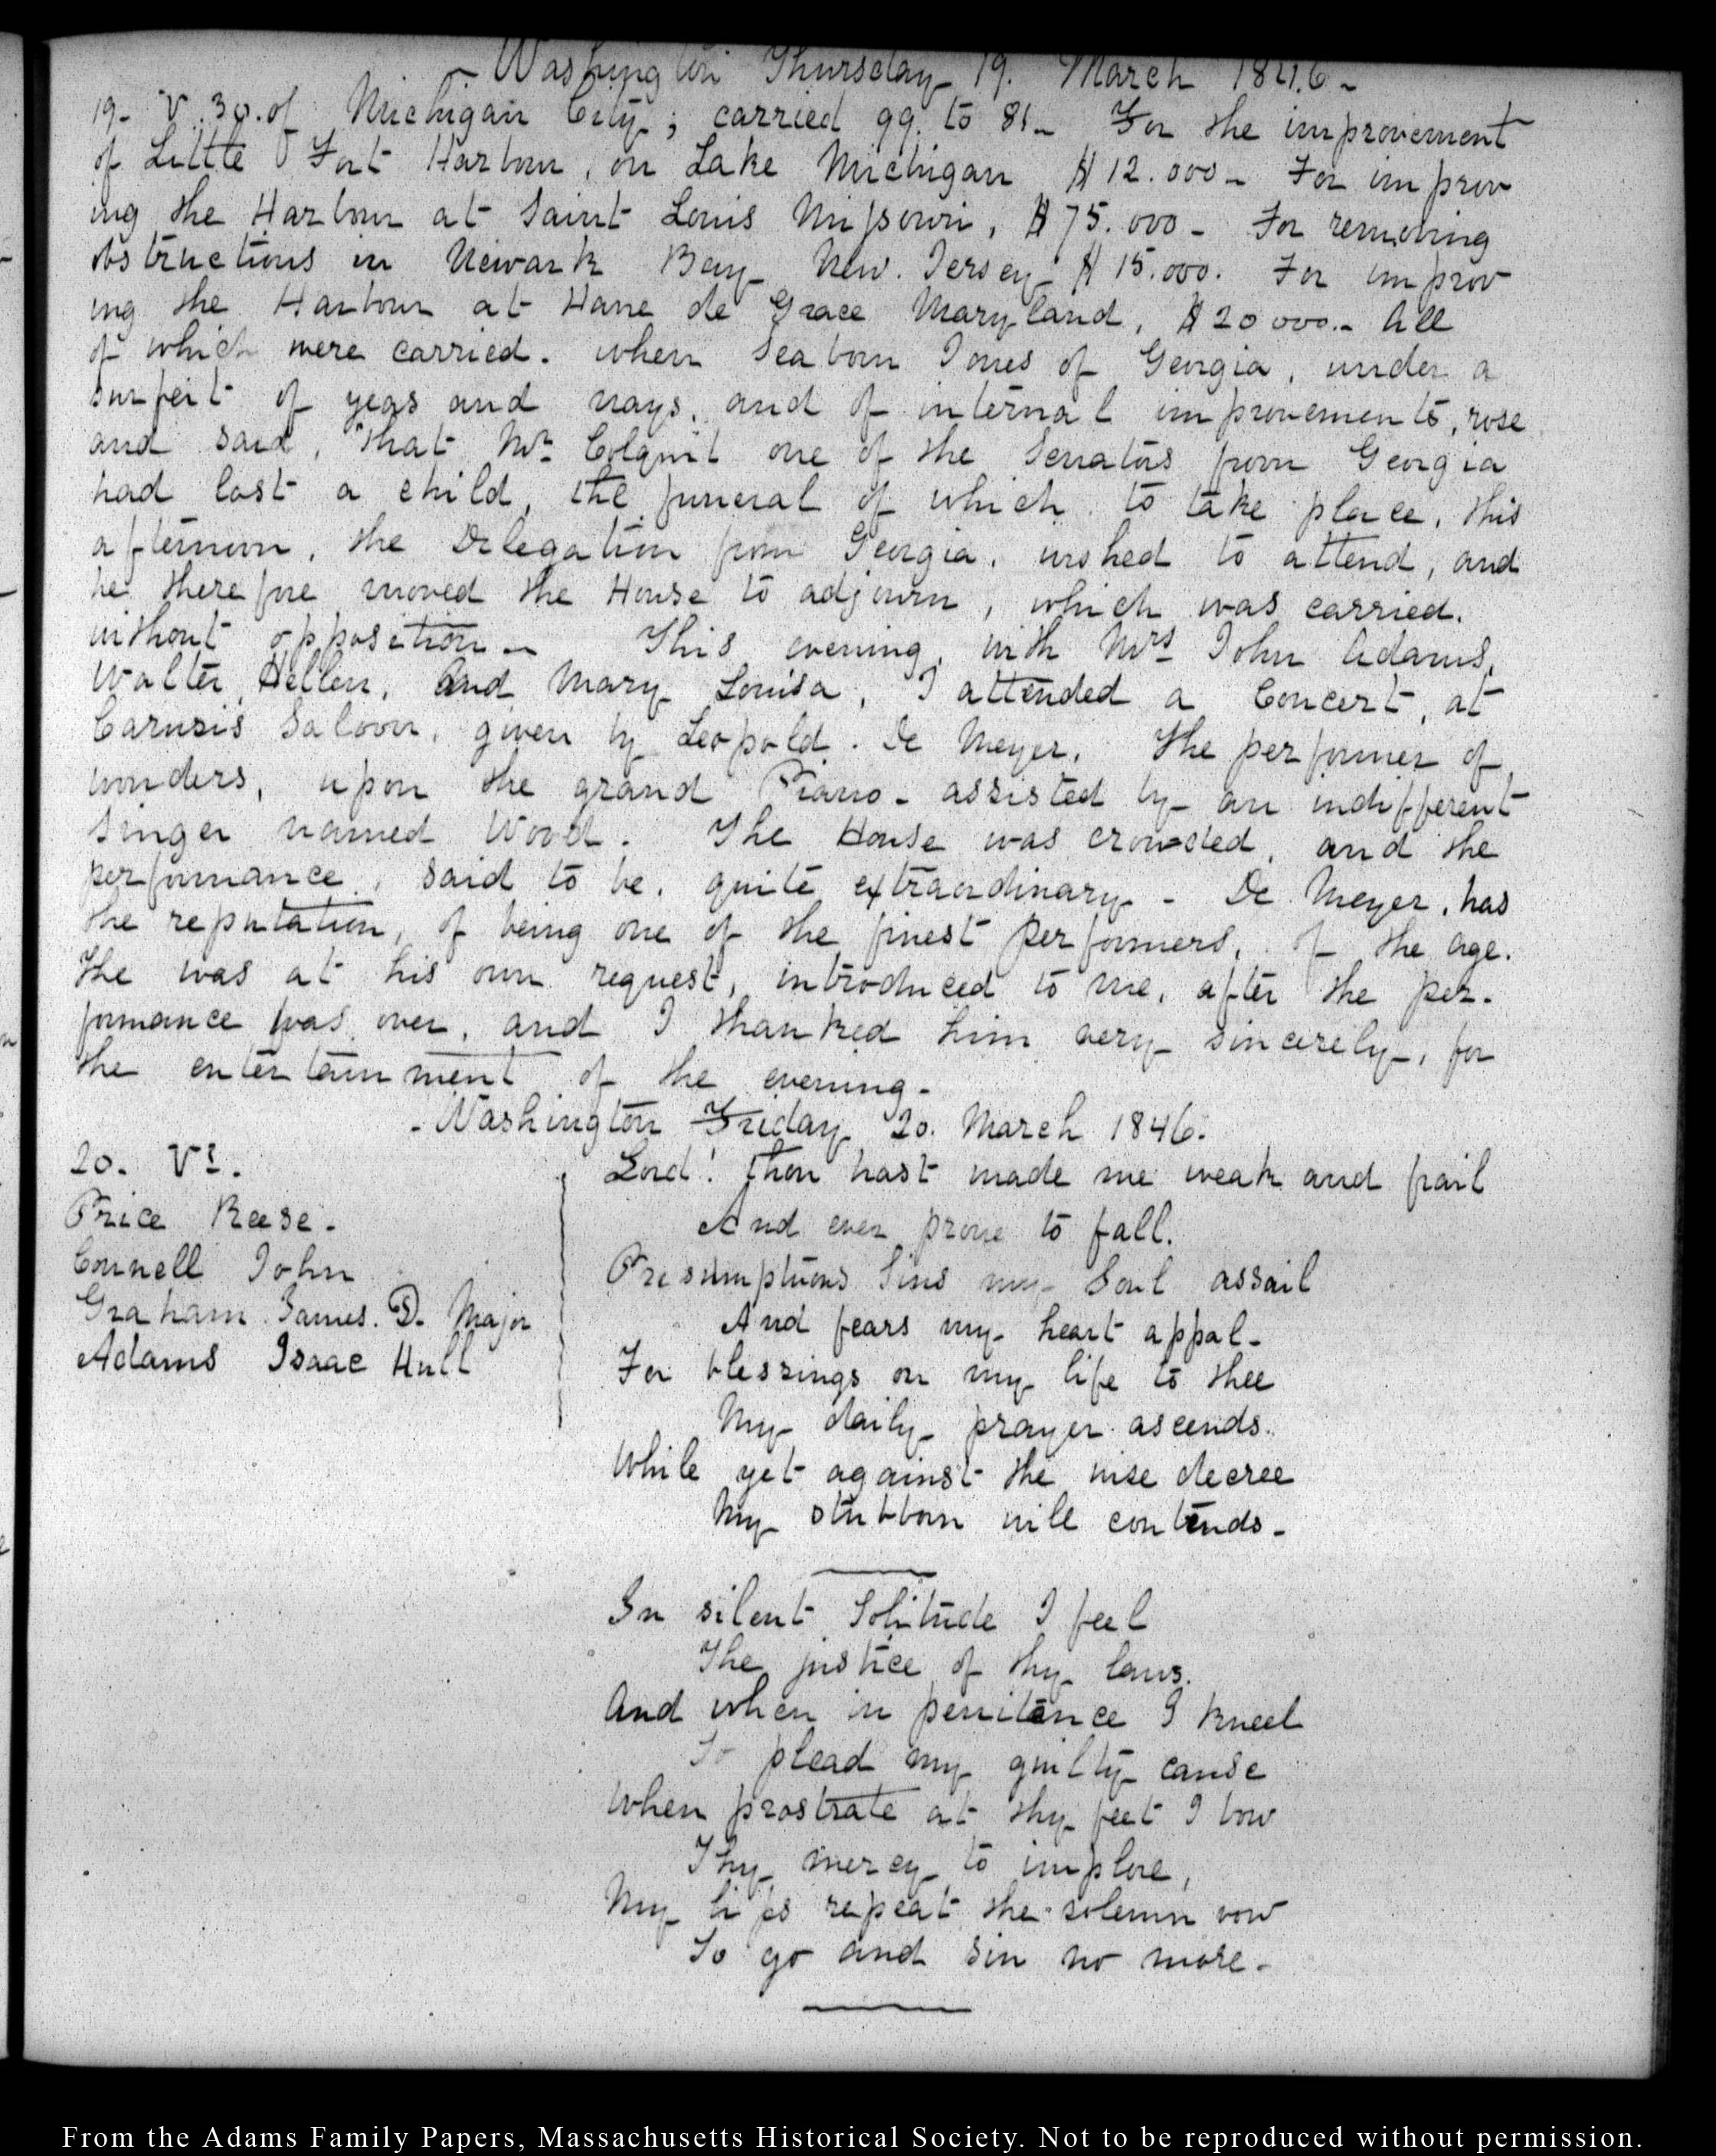 - Washington Thursday 19. March 1846 -
19- V. 30. of Michigan City; carried 99. to 81- For the improvement
of Little Fort Harbour, on Lake Michigan $12.000- For improv
ing the Harbour at Saint Louis Missouri, $75.000- For removing
obstructions in Newark Bay New. Jersey $15.000. For improv
ing the Harbour at Havre de Grace Maryland, $20000.- All
of which were carried. when Seaborn Jones of Georgia, under a
surfeit of yeas and nays, and of internal improvements, rose
and said, that Mr. Colquit one of the Senators from Georgia
had lost a child, the funeral of which to take place, this
afternoon, the Delegation from Georgia, wished to attend, and
he therefore moved the House to adjourn, which was carried.
without opposition- This evening, with Mrs John Adams,
Walter, Hellen, and Mary Louisa, I attended a Concert, at
Carusis Saloon, given by Leopold. De Meyer, the performer of
wonders, upon the grand Piano- assisted by an indifferent
singer named Wood. The House was crowded, and the
performance, said to be, quite extraordinary- De Meyer, has
the reputation, of being one of the finest performers, of the age.
The was at his own request, introduced to me, after the per-
formance was over, and I thanked him very sincerely, for
the entertainment of the evening-
- Washington Friday 20. March 1846.
20. Vs.
Price Reese-
Connell John
Graham James. D. Major
Adams Isaac Hull
Lord! thou hast made me weak and frail
And ever prone to fall.
Presumptuous Sins my Soul assail
And fears my heart appal-
For blessings on my life to thee
My daily prayer ascends.
While yet against the wise decree
My stubborn will contends-
In silent Solitude I feel
The justice of thy laws.
And when in penitence I kneel
To plead my guilty cause
When prostrate at thy feet I bow
Thy mercy to implore,
My lips repeat the solemn vow
To go and sin no more-
From the Adams Family Papers, Massachusetts Historical Society. Not to be reproduced without permission.